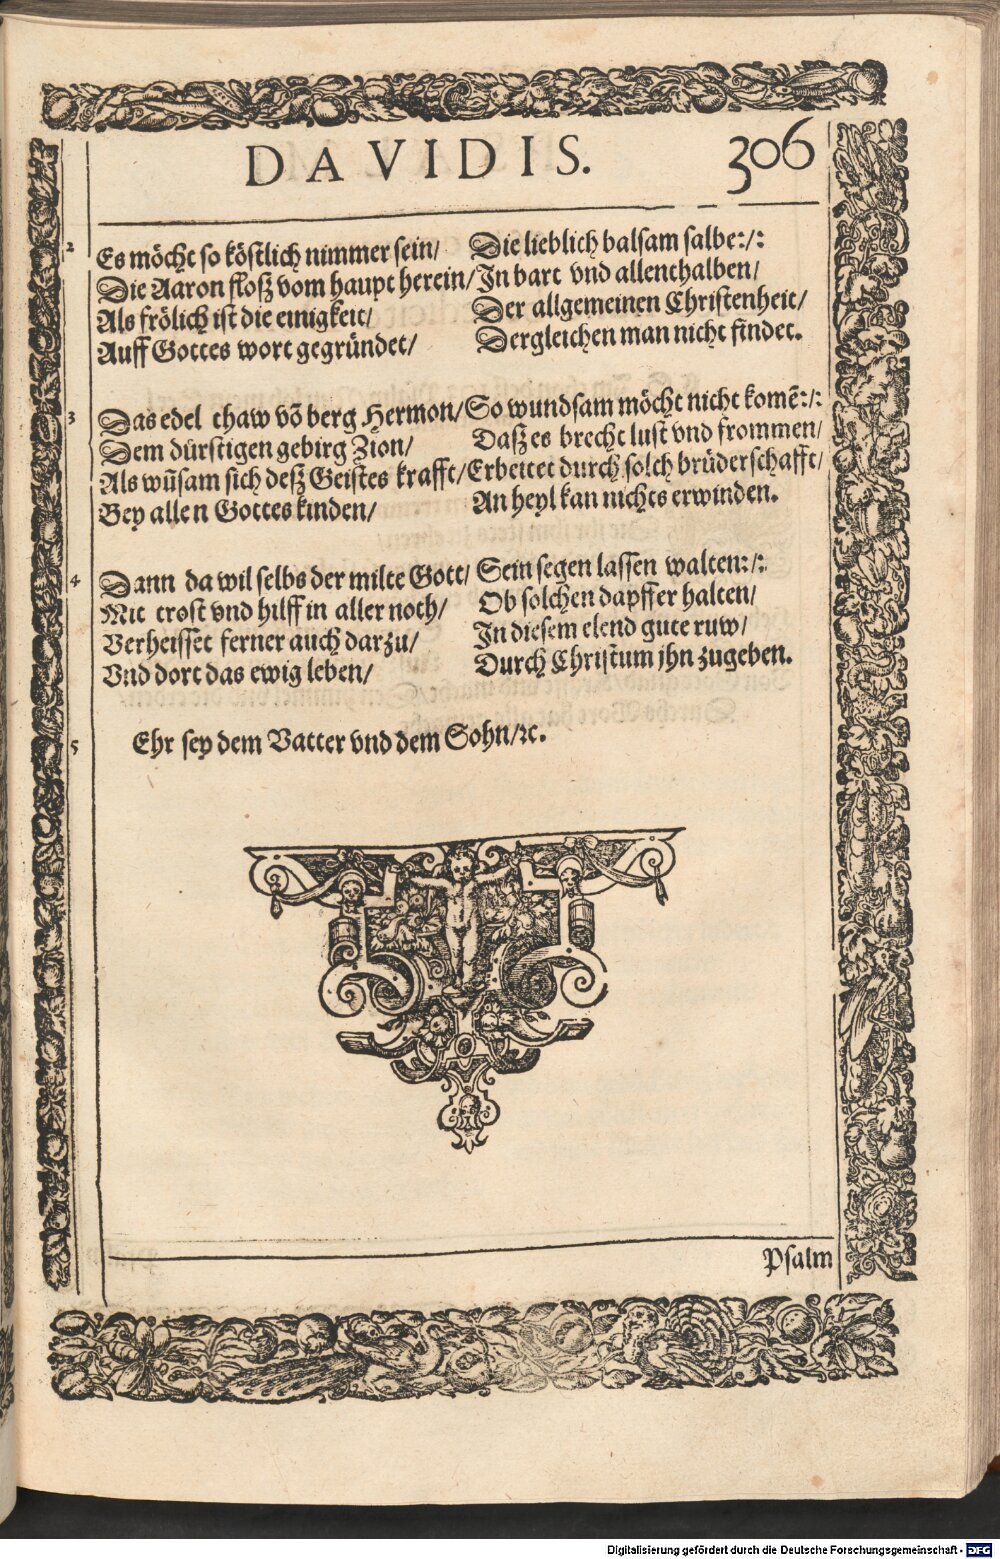 DAVIDIS. 306
2 Es möcht so köstlich nimmer sein/ Die lieblich balsam salbe:/:
Die Aaron floß vom haupt herein/ In bart vnd allenthalben/
Als frölich ist die einigkeit/ Der allgemeinen Christenheit/
Auff Gottes wort gegründet/ Dergleichen man nicht findet.
3 Das edel thaw võ berg Hermon/ So wundsam möcht nicht komẽ:/:
Dem dürstigen gebirg Zion/ Daß es brecht lust vnd frommen/
Als wũsam sich deß Geistes krafft/ Erbeitet durch solch brüderschafft/
Bey allen Gottes kinden/ An heyl kan nichts erwinden.
4 Dann da wil selbs der milte Gott/ Sein segen lassen walten:/:
Mit trost vnd hilff in aller noth/ Ob solchen dapffer halten/
Verheisset ferner auch darzu/ In diesem elend gute ruw/
Vnd dort das ewig leben/ Durch Christum jhn zugeben.
5 Ehr sey dem Vatter vnd dem Sohn/ꝛc.
Psalm
Digitalisierung gefördert durch die Deutsche Forschungsgemeinschaft - DFG